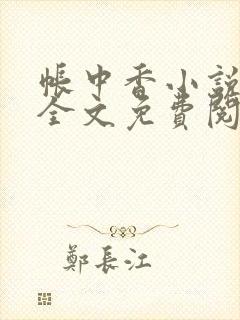 帳中香小說
全文免費閱
鄭長江